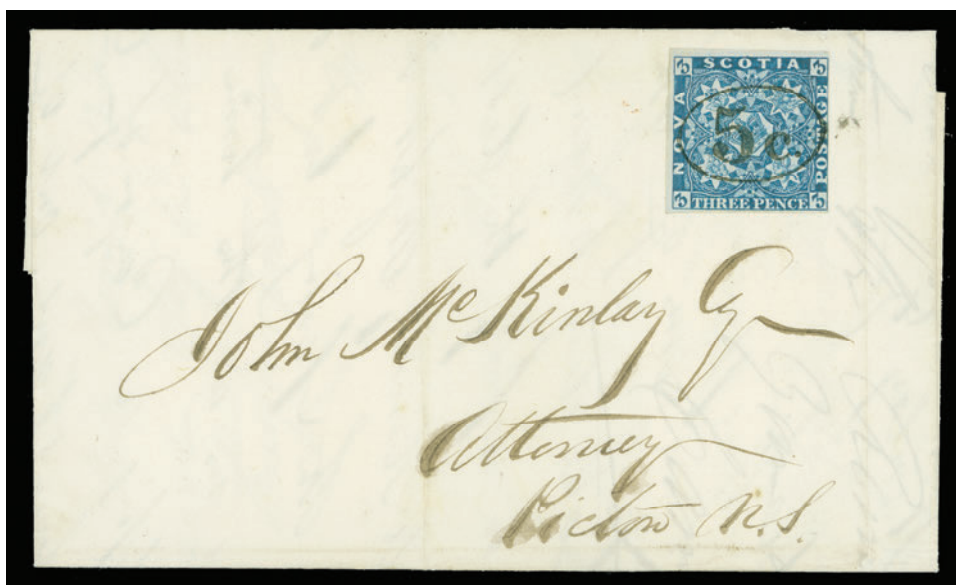 SCOTIA
NOVA
POSTAGE
THREE PENCE
5 c.
John McKinlay Esq
Attorney
Pictou N.S.